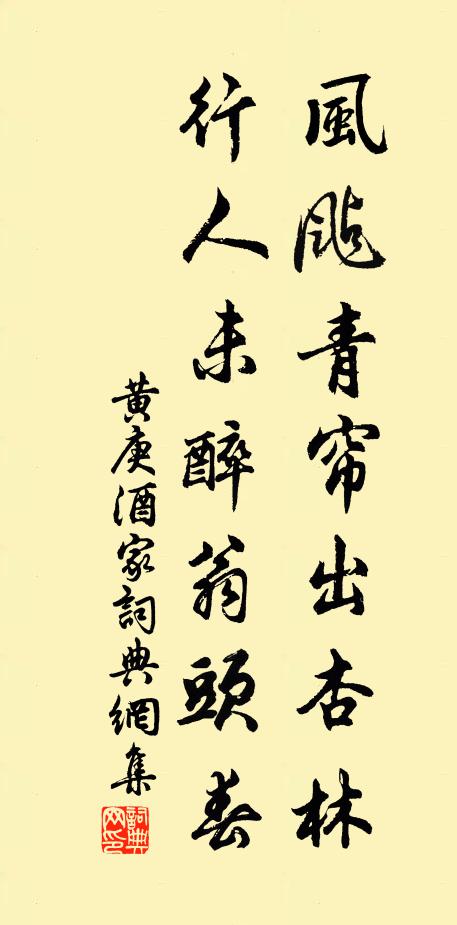 風颭青帘出杏林
行人未醉翁頭春
黄庚酒家詞典網集
詞典网印